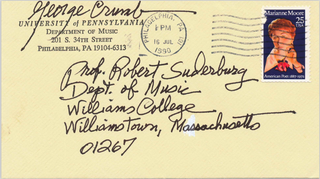 George Crumb
UNIVERSITY of PENNSYLVANIA
DEPARTMENT OF MUSIC
201 S. 34TH STREET
PHILADELPHIA, PA 19104-6313
PHILADELPHIA, PA
PM
16 JUL
1990
Marianne Moore
25
USA
American Poet, 1887-1972
Prof. Robert Suderburg
Dept. of Music
Williams College
Williamstown, Massachusetts
01267